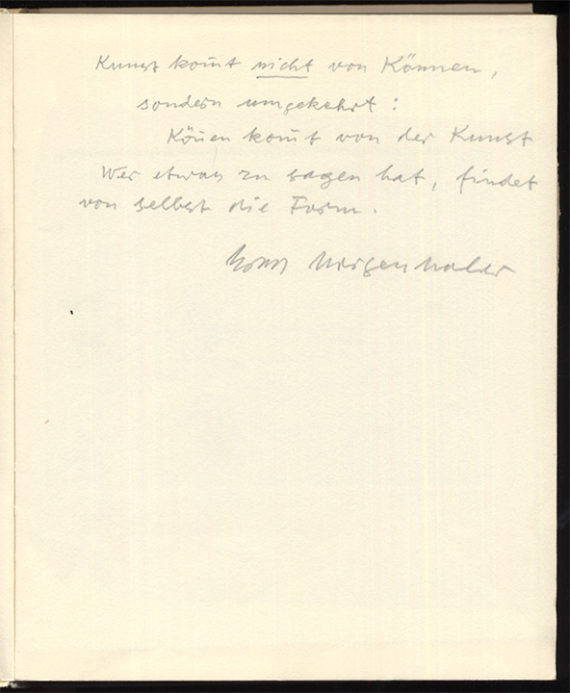 Kunst kom̅t nicht von Können,
sondern umgekehrt:
Kön̅en kom̅t von der Kunst
Wer etwas zu sagen hat, findet
von selbst die Form.
Hans Morgenthaler